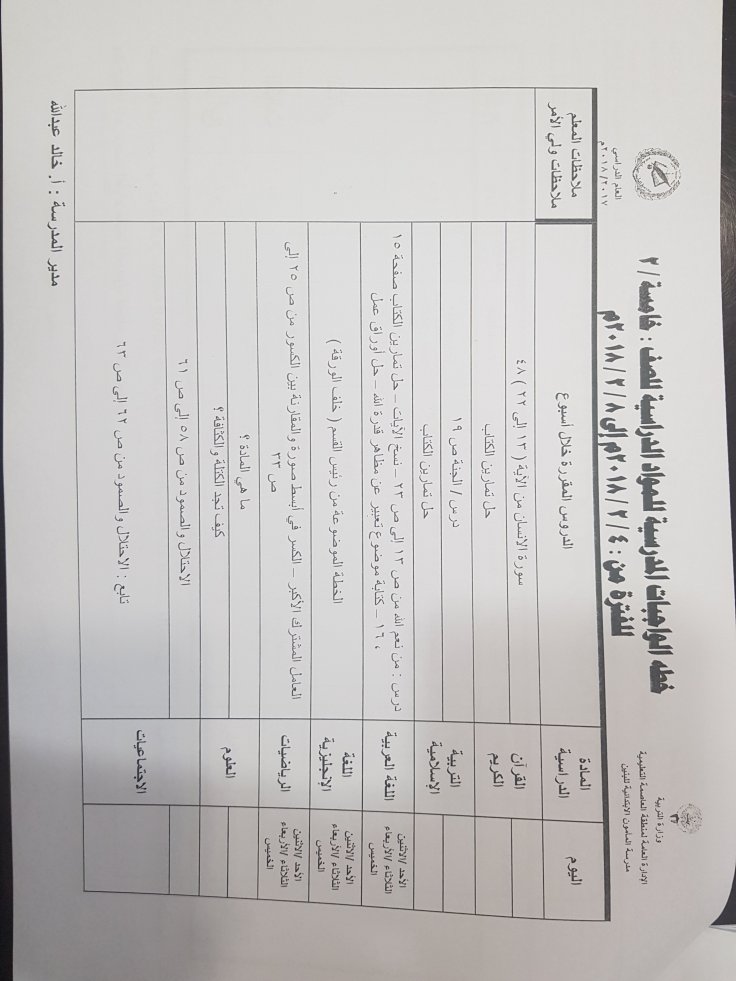 وزارة التربية
الإدارة العامة لمنطقة العاصمة التعليمية
مدرسة المأمون الابتدائية للبنين
العام الدراسي
٢٠١٨/٢٠١٧م
خطه الواجبات المدرسية للمواد الدراسية للصف : خامسة / ٢
للفترة من : ٤ / ٢ / ٢٠١٨م إلى ٨ / ٢ / ٢٠١٨م
اليوم
المادة الدراسية
الدروس المقررة خلال أسبوع
ملاحظات المعلم
ملاحظات ولي الأمر
القرآن الكريم
سورة الانسان من الأية ( ١٣ إلى ٢٢ ) ٤٨
حل تمارين الكتاب
التربية الإسلامية
درس / الجنة ص ١٩
حل تمارين الكتاب
الأحد /الاثنين
الثلاثاء /الأربعاء
الخميس
اللغة العربية
درس : من نعم الله من ص ١٣ إلى ص ٢٣ – نسخ الأيات – حل تمارين الكتاب صفحة ١٥
، ١٦ – كتابة موضوع تعبير عن مظاهر قدرة الله – حل أوراق عمل
الأحد /الاثنين
الثلاثاء /الأربعاء
الخميس
اللغة الإنجليزية
الخطة الموضوعة من رئيس القسم ( خلف الورقة )
الأحد /الاثنين
الثلاثاء /الأربعاء
الخميس
الرياضيات
العامل المشترك الأكبر – الكسر في أبسط صورة والمقارنة بين الكسور من ص ٢٥ إلى
ص ٣٣
العلوم
ما هي المادة ؟
كيف تجد الكتلة والكثافة ؟
الاجتماعيات
الاحتلال والصمود من ص ٥٨ إلى ص ٦١
تابع : الاحتلال والصمود من ص ٦٢ إلى ص ٦٣
مدير المدرسة : أ. خالد عبدالله